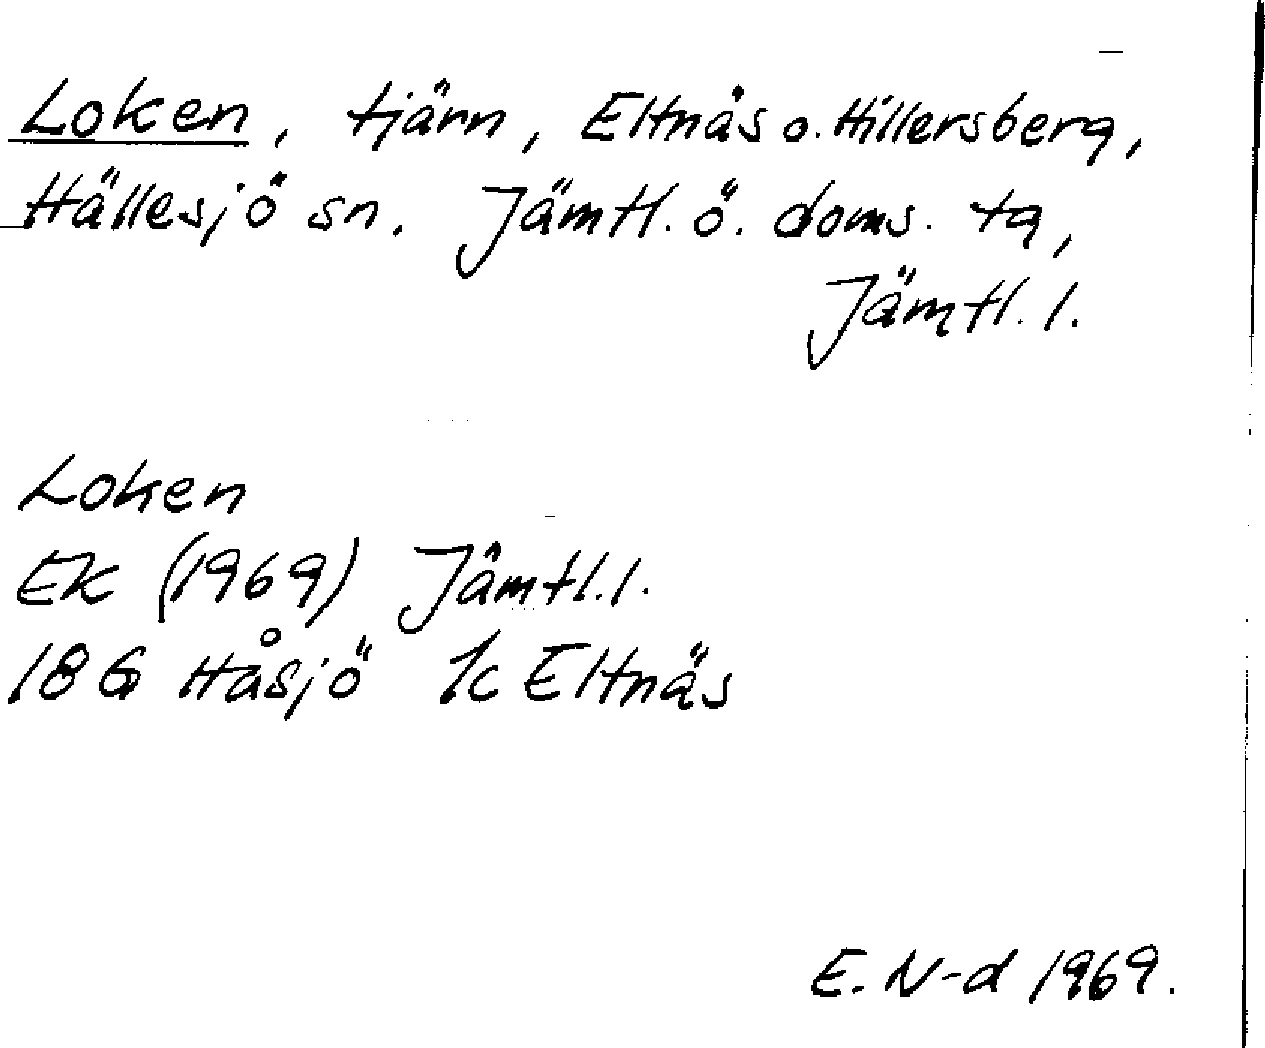 Loken, tjärn, Eltnäs o. Hillersberg,
Hällesjö sn. Jämtl. ö. doms. tg,
Jämtl. l.
Loken
EK (1969) Jämtl. l.
18 G Håsjö 1c Eltnäs
E. N-d 1969.